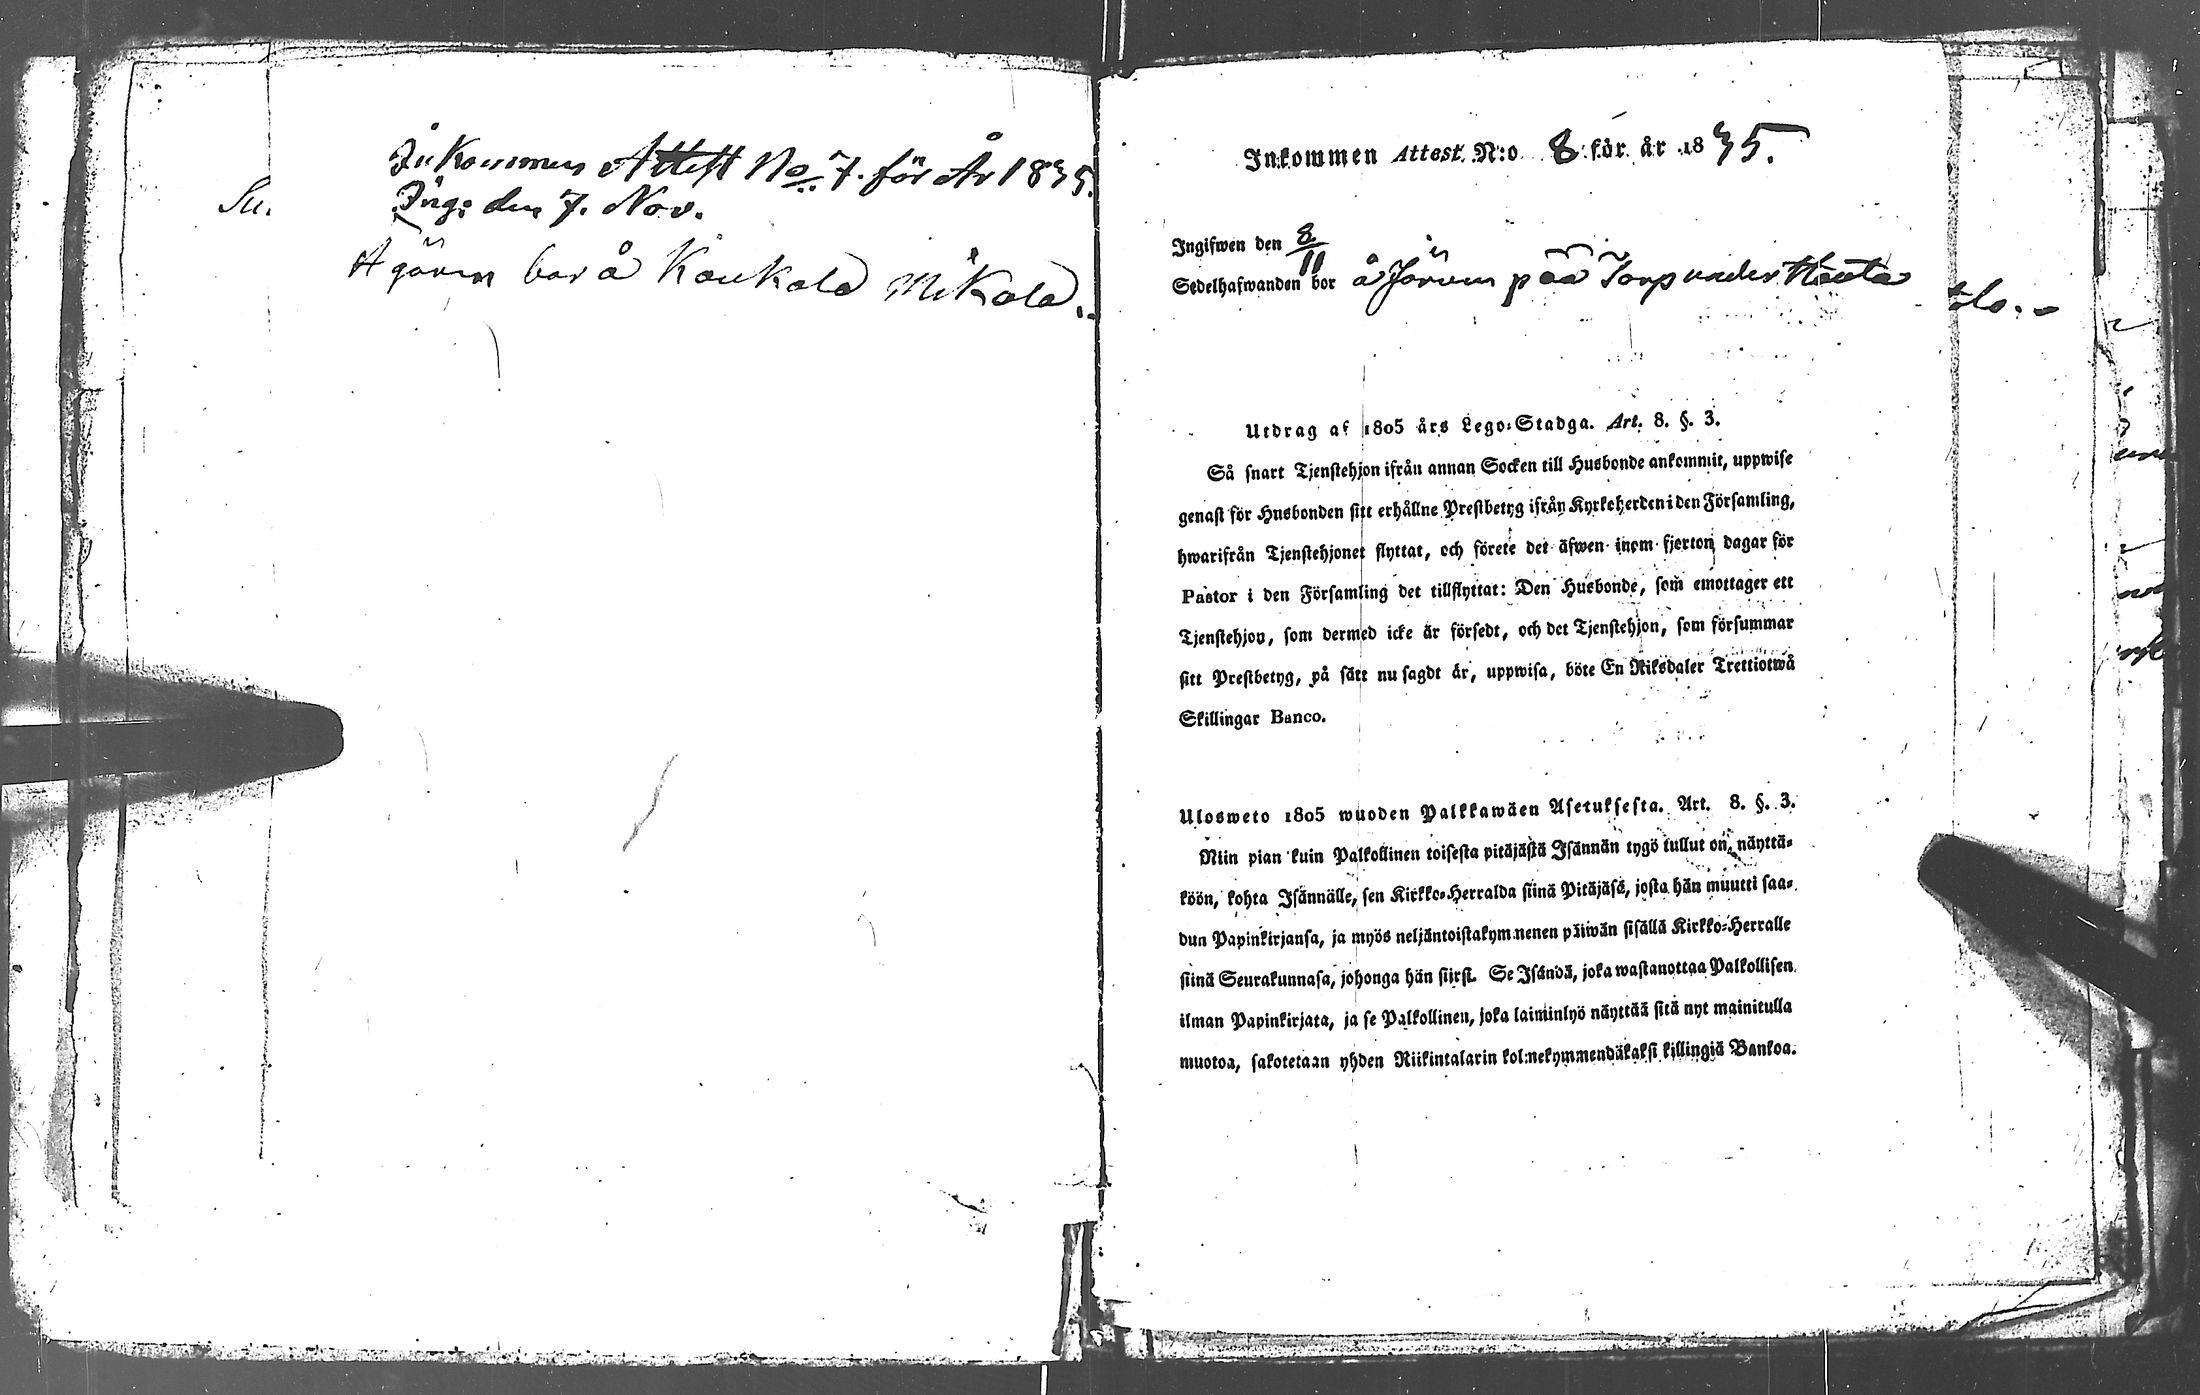 Inkommen Attest No 7. för År 1835.
Ing: den 7. Nov.
Ägaren bor å Koukola Mikola.
Inkommen Attest. N:o 8 för år 1835.
Ingifwen den 8/11
Sedelhafwanden bor å Jörvis på Torp under
Utdrag af 1805 års Lego-Stadga. Art. 8. §. 3.
Så snart Tjenstehjon ifrån annan Socken till Husbonde ankommit, uppwise
genast för Husbonden sitt erhållne Prestbetyg ifrån Kyrkoherden i den Församling,
hwarifrån Tjenstehjonet flyttat, och förete det äfwen inom fjorton dagar för
Pastor i den Församling det tillflyttat: Den Husbonde, som emottager ett
Tjenstehjon, som dermed icke är försedt, och det Tjenstehjon, som försummar
sitt Prestbetyg, på sätt nu sagdt är, uppwisa, böte En Riksdaler Trettiotwå
Skillingar Banco.
Ulosweto 1805 wuoden Palkkawäen Asetuksesta. Art. 8. §. 3.
Niin pian kuin Palkollinen toisesta pitäjästä Isännän tygö tullut on, näyttä-
köön, kohta Isännälle, sen Kirkko-Herralda siinä Pitäjäsä, josta hän muutti saa-
dun Papinkirjansa, ja myös neljäntoistakymmenen päiwän sisällä Kirkko-Herralle
siinä Seurakunnasa, johonga hän siirsi. Se Isändä, joka wastanottaa Palkollisen
ilman Papinkirjata, ja se Palkollinen, joka laiminlyö näyttää sitä nyt mainitulla
muotoa, sakotetaan yhden Riikintalarin kolmekymmendäkaksi killingiä Bankoa.